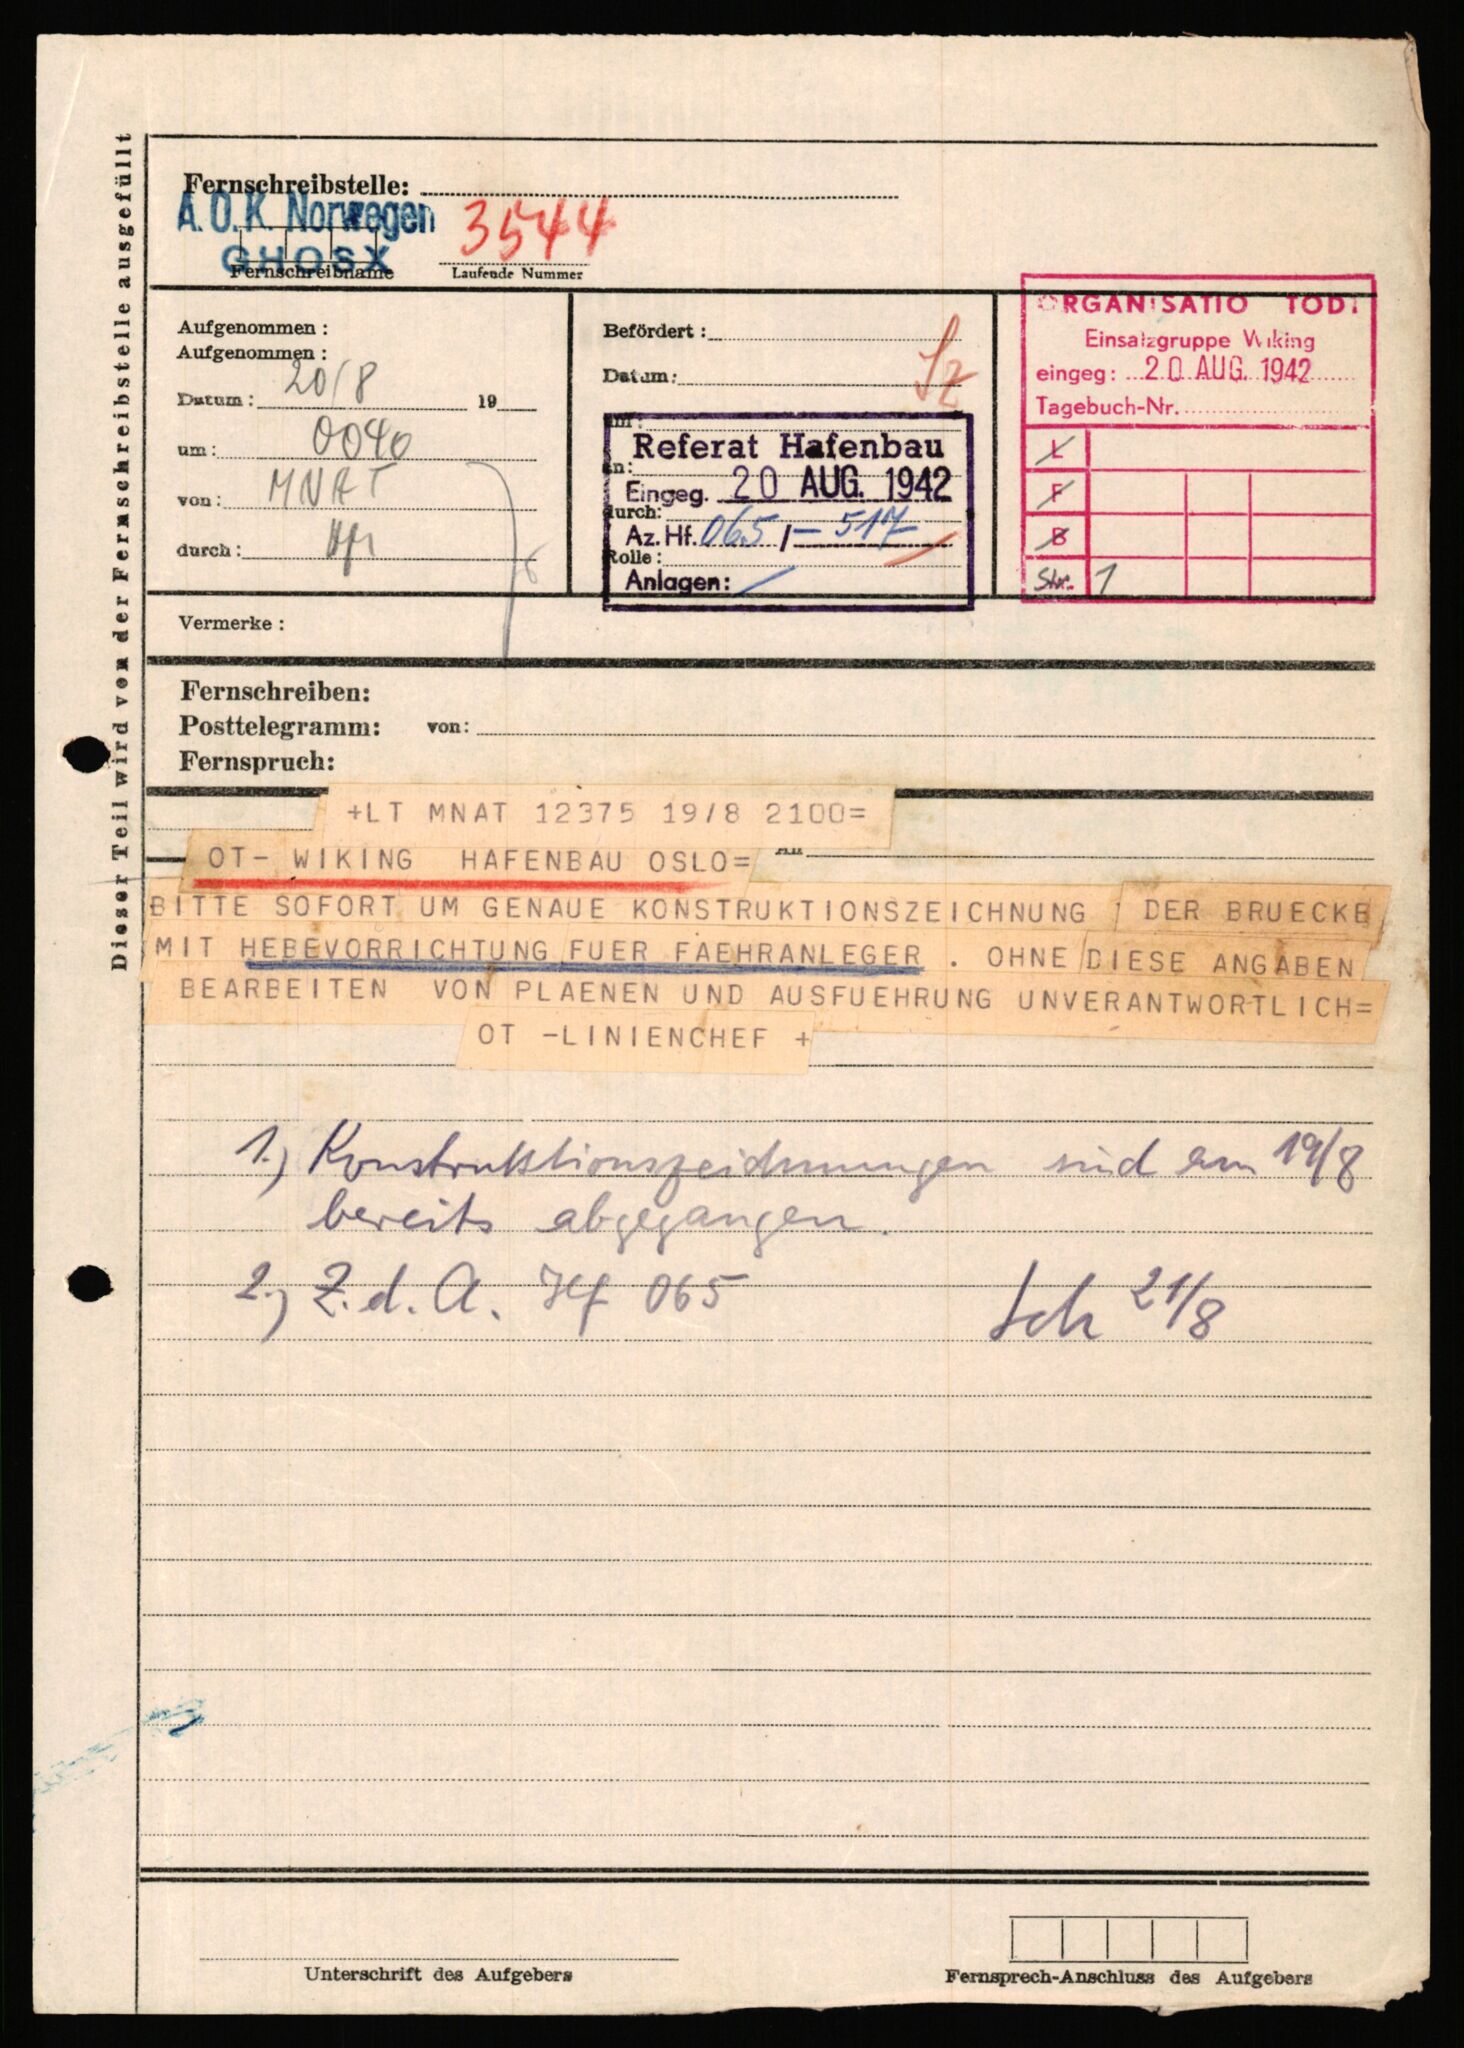 Dieser Teil wird von der Fernschreibstelle ausgefüllt
Fernschreibstelle:
A.O.K. Norwegen
GHOSX
Fernschreibname
3544
Laufende Nummer
Aufgenommen :
Aufgenommen :
Datum : 20/8 19
um: 0040
von: MNAT
durch:
Befördert :
Datum:
um:
an:
durch:
Rolle:
Referat Hafenbau
Eingeg. 20 AUG. 1942
Az. Hf. 065 / - 517
Anlagen: /
ORGANISATIO TODT
Einsatzgruppe Wiking
eingeg: 20 AUG. 1942
Tagebuch-Nr.
L
F
B
Str. 1
Vermerke :
Fernschreiben:
Posttelegramm: von:
Fernspruch:
+LT MNAT 12375 19/8 2100=
OT- WIKING HAFENBAU OSLO=
An
BITTE SOFORT UM GENAUE KONSTRUKTIONSZEICHNUNG DER BRUECKE
MIT HEBEVORRICHTUNG FUER FAEHRANLEGER . OHNE DIESE ANGABEN
BEARBEITEN VON PLAENEN UND AUSFUEHRUNG UNVERANTWORTLICH=
OT -LINIENCHEF +
1.) Konstruktionszeichnungen sind am 19/8
bereits abgegangen.
2.) Z.d.A. Hf 065 Sch 21/8
Unterschrift des Aufgebers
Fernsprech-Anschluss des Aufgebers